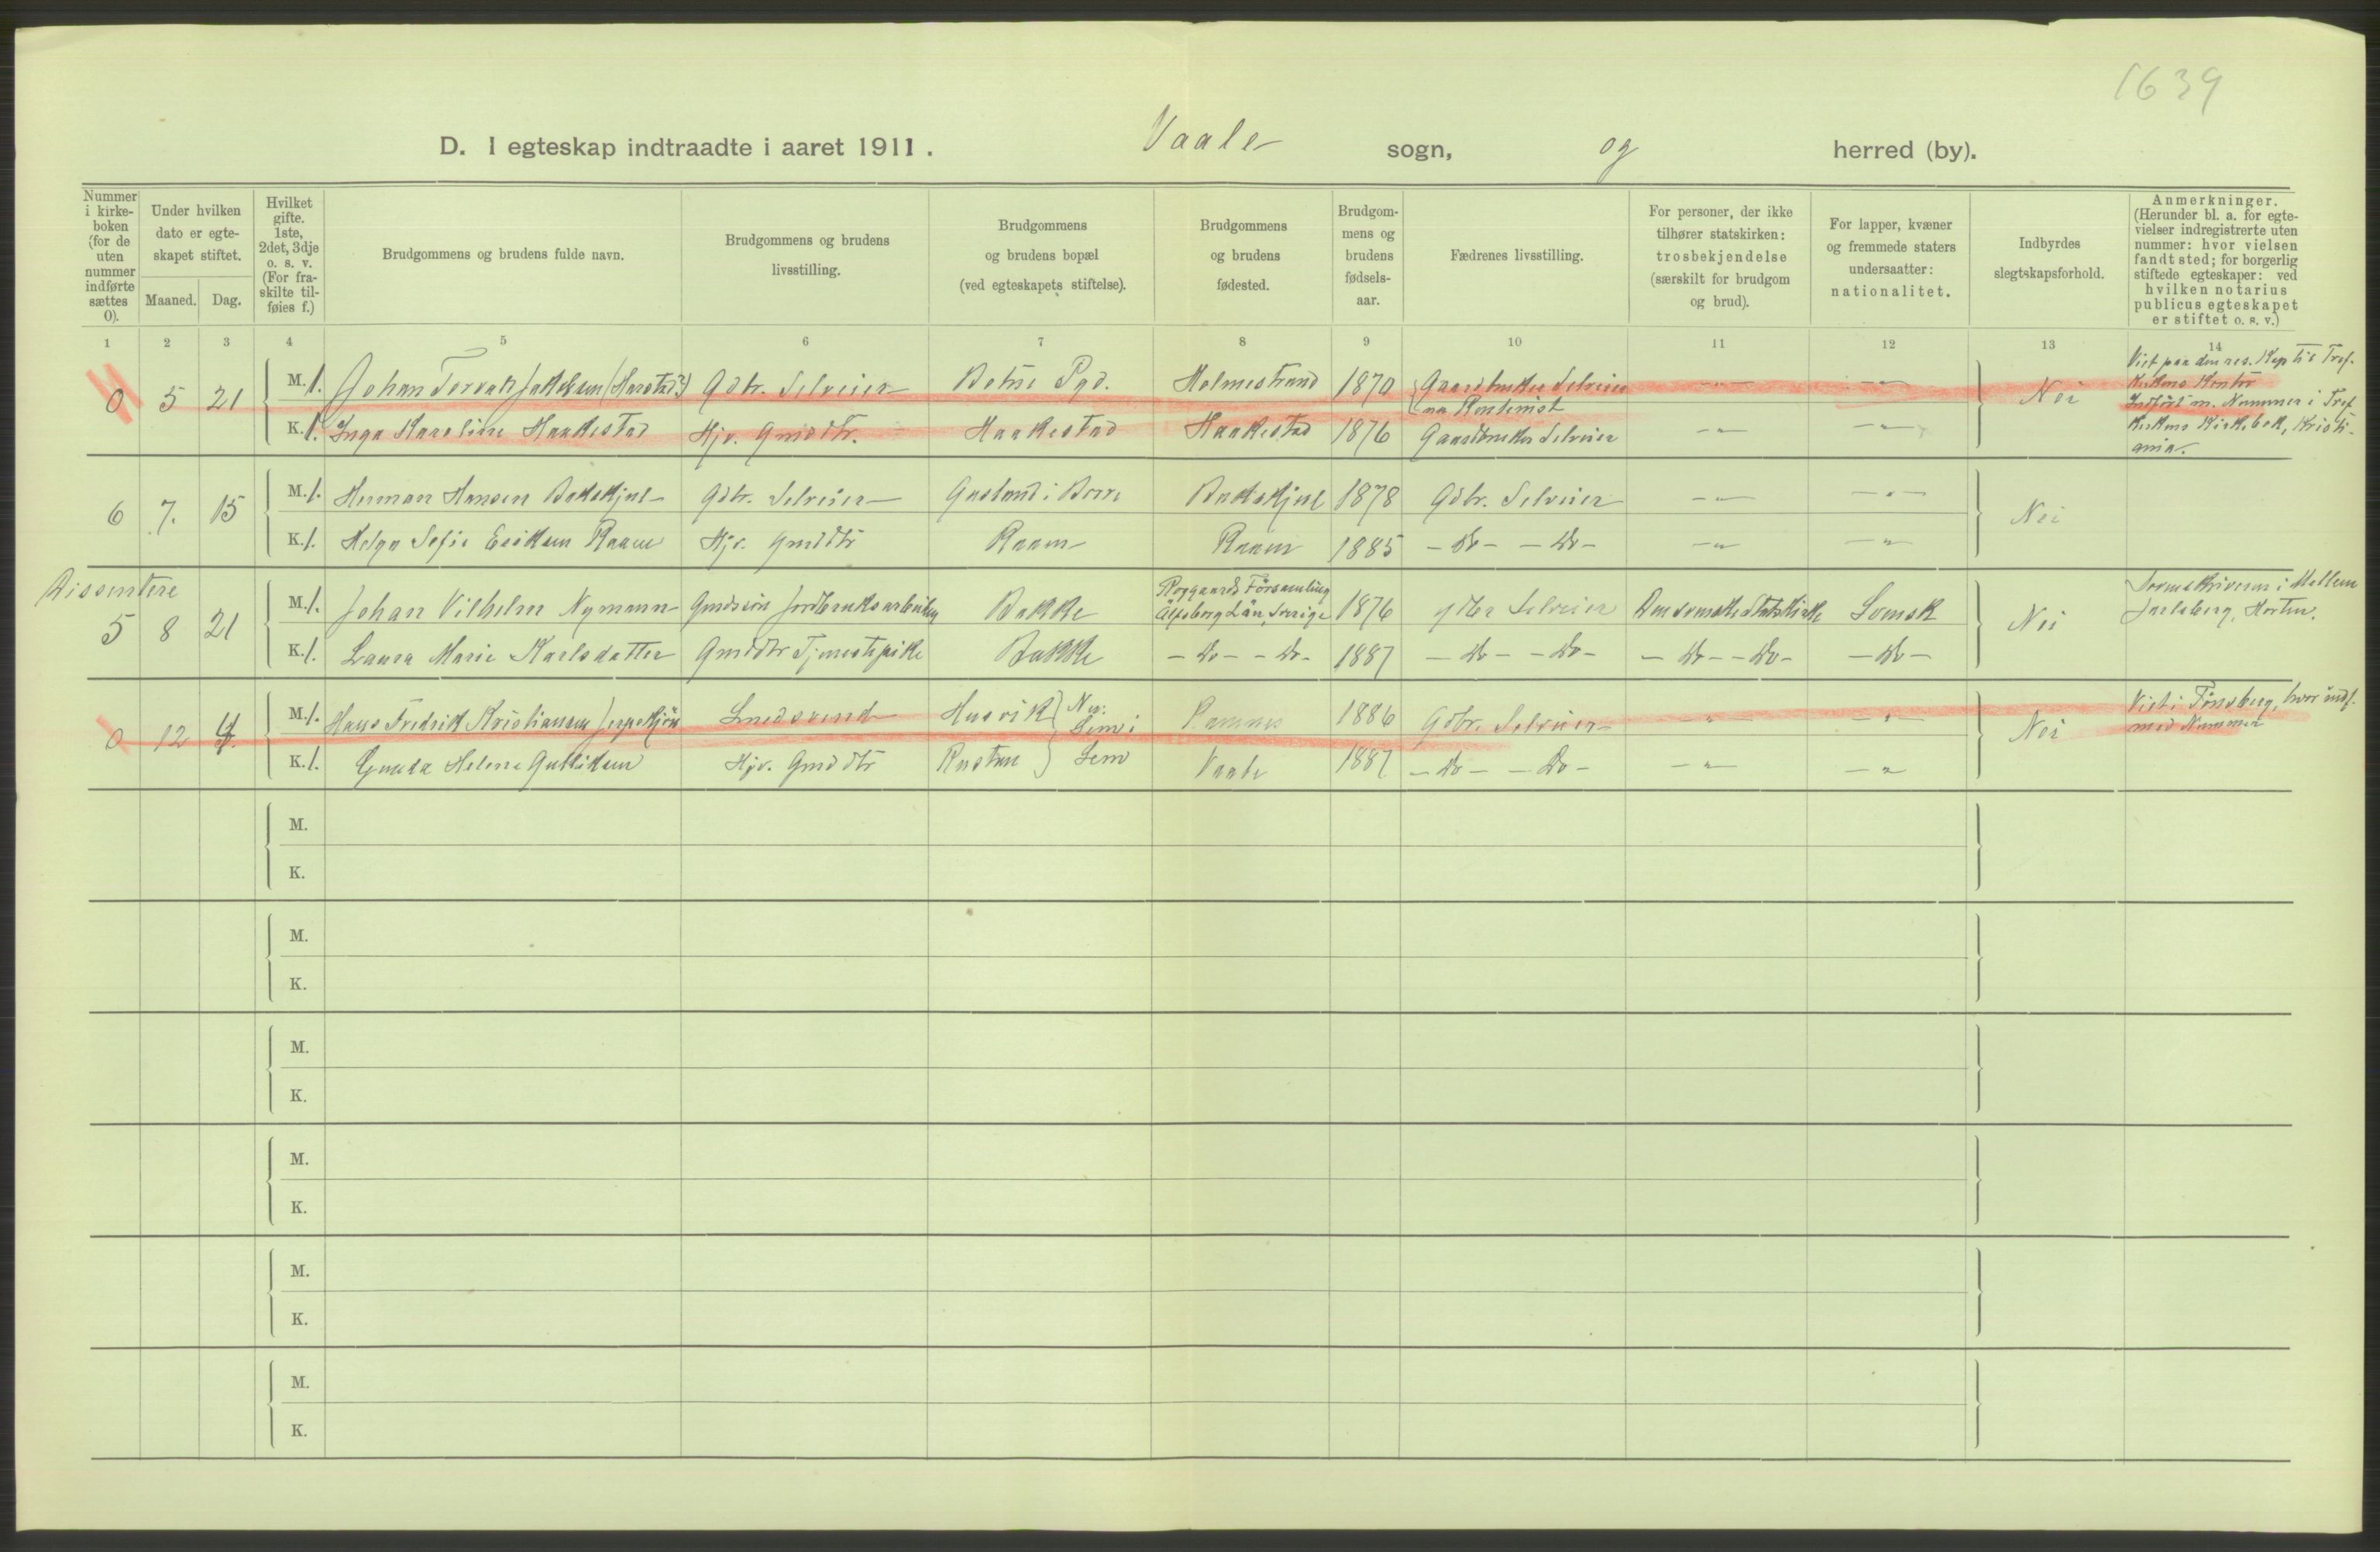 1639
D. I egteskap indtraadte i aaret 1911. Vaale sogn, og herred (by).
Nummer i kirkeboken (for de uten nummer indførte sættes 0).
Under hvilken dato er egteskapet stiftet.
Maaned. Dag.
Hvilket gifte. 1ste, 2det, 3dje o. s. v. (For fraskilte tilføies f.)
Brudgommens og brudens fulde navn.
Brudgommens og brudens livsstilling.
Brudgommens og brudens bopæl (ved egteskapets stiftelse).
Brudgommens og brudens fødested.
Brudgommens og brudens fødselsaar.
Fædrenes livsstilling.
For personer, der ikke tilhører statskirken: trosbekjendelse (særskilt for brudgom og brud).
For lapper, kvæner og fremmede staters undersaatter: nationalitet.
Indbyrdes slegtskapsforhold.
Anmerkninger. (Herunder bl. a. for egtevielser indregistrerte uten nummer: hvor vielsen fandt sted; for borgerlig stiftede egteskaper: ved hvilken notarius publicus egteskapet er stiftet o. s. v.)
1 2 3 4 5 6 7 8 9 10 11 12 13 14
0 5 21 M. 1. Johan Torvald Jakobsen Gdbr. Selveier Botne Pgd. Holmestrand 1870 Gaardbruker Selveier -"- -"- Nei
K. 1. Inga Karoline Haakestad Hjv. Gmddtr. Haakestad Haakestad 1876 Gaardbruker Selveier -"- -"-
Viet paa den res. Kap til Tref.
Kirkens Kontor
Indført m. Nummer i Tref.
Kirkens Kirkebok, Kristi-
ania.
6 7. 15 M. 1. Herman Hansen Bakskjul Gdbr. Selveier i Borre Bakskjul 1878 Gdbr. Selveier -"- -"- Nei
K. 1. Helga Sofie Eriksen Raaen Hjv. Gmddtr Raaen Raaen 1885 - Do - - Do - -"- -"-
Dissentere
5 8 21 M. 1. Johan Vilhelm Nymann Gmdsøn Jordbruksarbeider Bakke Församling Älfsborg Län, Sverige 1876 Gdbr Selveier Den svenske Statskirke Svensk Nei
K. 1. Laura Marie Karlsdatter Gmddtr Tjenestepike Bakke - Do - - Do - 1887 - Do - - Do - - Do - - Do - - Do -
Sorenskriveren i Mellem
Jarlsberg, Horten.
0 12 4. M. 1. Hans Fredrik Kristiansen Smedsvend Husvik Sem i Ramnes 1886 Gdbr. Selveier -"- -"- Nei
K. 1. Helene Gulliksen Hjv. Gmddtr Rustan Sem Vaale 1887 - Do - - Do - -"- -"-
Viet i Tønsberg, hvor indf.
med Nummer
M.
K.
M.
K.
M.
K.
M.
K.
M.
K.
M.
K.